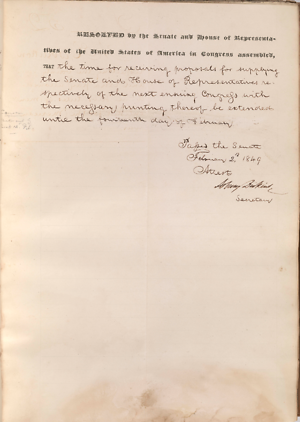 RESOLVED by the Senate and House of Representa-
tives of the United States of America in Congress assembled,
THAT the time for receiving proposals for supplying
the Senate and House of Representatives re-
spectively of the next ensuing Congress with
the necessary printing thereof, be extended
until the fourteenth day of February
Passed the Senate
February 2d 1849
Attest
Secretary